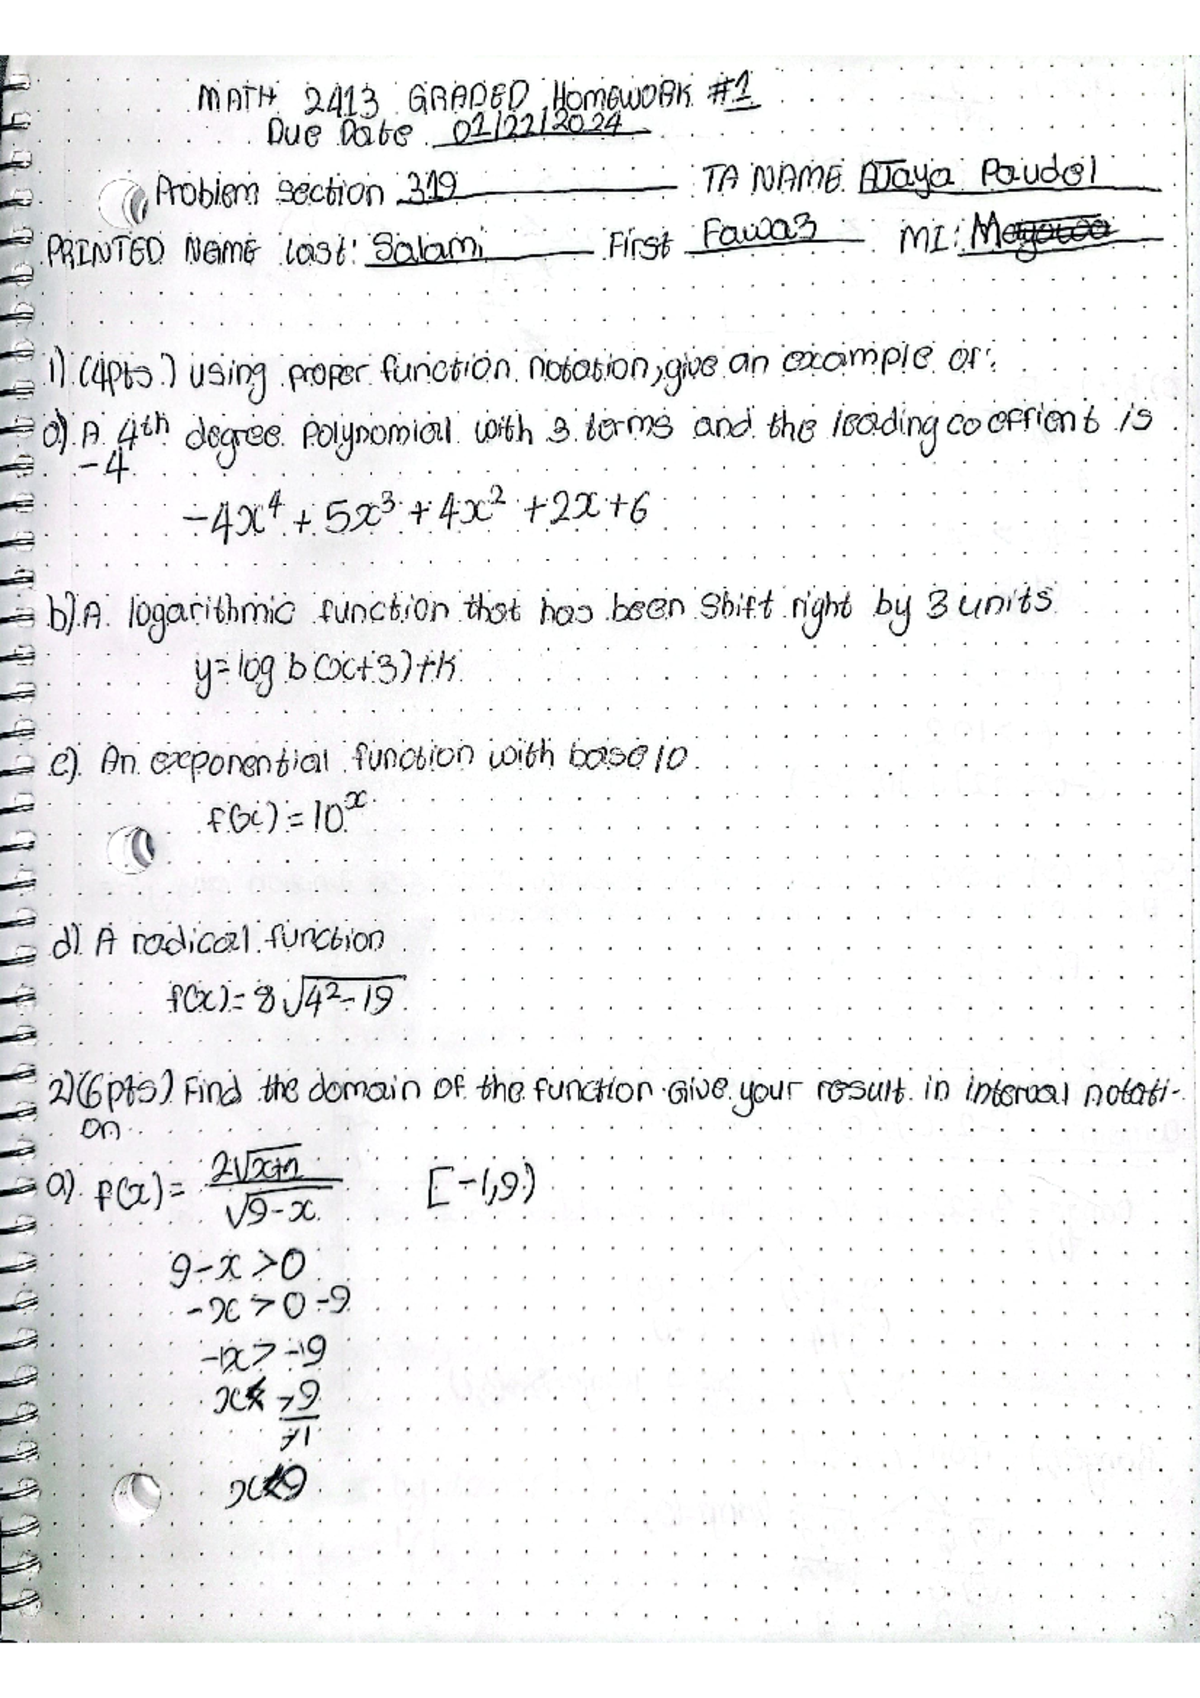 MATH 2413 GRADED HOMEWORK #1
Due Date 01/22/2024
Problem section 319 TA NAME AJaya Paudel
PRINTED NAME last: Salami First Fawaz MI: M
1) (4pts.) using proper function notation, give an example of:
a) A 4th degree polynomial with 3 terms and the leading coeffient is
-4
-4x⁴ + 5x³ + 4x² + 2x + 6
b) A logarithmic function that has been shift right by 3 units
y = log b (x+3)+k
c) An exponential function with base 10
f(x) = 10ˣ
d) A radical function
f(x) = 8√4²-19
2) (6pts) Find the domain of the function. Give your result in interval notati-
on
a) f(x) = 2√x+1 / √9-x [-1,9)
9-x > 0
-x > 0-9
-1x > -9
x < -9/-1
x < 9